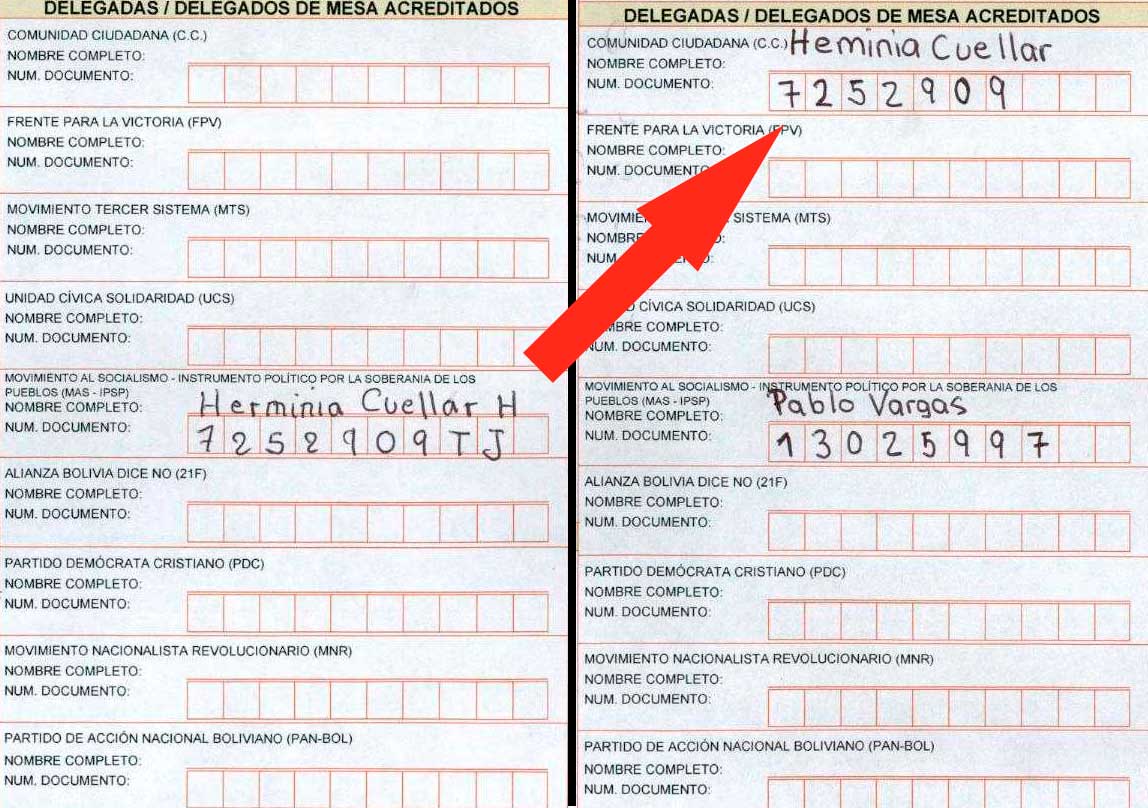 DELEGADAS / DELEGADOS DE MESA ACREDITADOS
COMUNIDAD CIUDADANA (C.C.)
NOMBRE COMPLETO:
NUM. DOCUMENTO:
FRENTE PARA LA VICTORIA (FPV)
NOMBRE COMPLETO:
NUM. DOCUMENTO:
MOVIMIENTO TERCER SISTEMA (MTS)
NOMBRE COMPLETO:
NUM. DOCUMENTO:
UNIDAD CÍVICA SOLIDARIDAD (UCS)
NOMBRE COMPLETO:
NUM. DOCUMENTO:
MOVIMIENTO AL SOCIALISMO - INSTRUMENTO POLÍTICO POR LA SOBERANIA DE LOS
PUEBLOS (MAS - IPSP)
NOMBRE COMPLETO: Herminia Cuellar H
NUM. DOCUMENTO: 7252909TJ
ALIANZA BOLIVIA DICE NO (21F)
NOMBRE COMPLETO:
NUM. DOCUMENTO:
PARTIDO DEMÓCRATA CRISTIANO (PDC)
NOMBRE COMPLETO:
NUM. DOCUMENTO:
MOVIMIENTO NACIONALISTA REVOLUCIONARIO (MNR)
NOMBRE COMPLETO:
NUM. DOCUMENTO:
PARTIDO DE ACCIÓN NACIONAL BOLIVIANO (PAN-BOL)
NOMBRE COMPLETO:
NUM. DOCUMENTO:
DELEGADAS / DELEGADOS DE MESA ACREDITADOS
COMUNIDAD CIUDADANA (C.C.) Heminia Cuellar
NOMBRE COMPLETO:
NUM. DOCUMENTO: 7252909
FRENTE PARA LA VICTORIA (FPV)
NOMBRE COMPLETO:
NUM. DOCUMENTO
SISTEMA (MTS)
NUM
CÍVICA SOLIDARIDAD (UCS)
COMPLETO:
NUM. DOCUMENTO:
MOVIMIENTO AL SOCIALISMO - INSTRUMENTO POLÍTICO POR LA SOBERANIA DE LOS
PUEBLOS (MAS - IPSP)
NOMBRE COMPLETO: Pablo Vargas
NUM. DOCUMENTO: 13025997
ALIANZA BOLIVIA DICE NO (21F)
NOMBRE COMPLETO:
NUM. DOCUMENTO:
PARTIDO DEMÓCRATA CRISTIANO (PDC)
NOMBRE COMPLETO:
NUM. DOCUMENTO:
MOVIMIENTO NACIONALISTA REVOLUCIONARIO (MNR)
NOMBRE COMPLETO:
NUM. DOCUMENTO:
PARTIDO DE ACCIÓN NACIONAL BOLIVIANO (PAN-BOL)
NOMBRE COMPLETO:
NUM. DOCUMENTO: